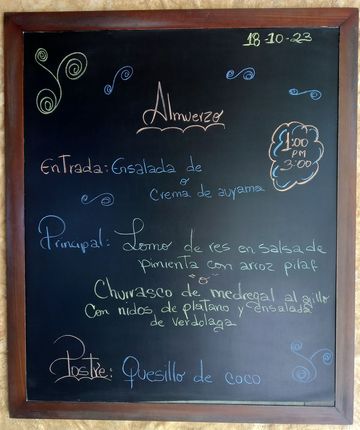 18-10-23
Almuerzo
1:00
PM
3:00
Entrada: Ensalada de
o
Crema de auyama
Principal: Lomo de res en salsa de
pimienta con arroz pilaf
"o"
Churrasco de medregal al ajillo
Con nidos de platano y ensalada
de verdolaga
Postre: Quesillo de coco